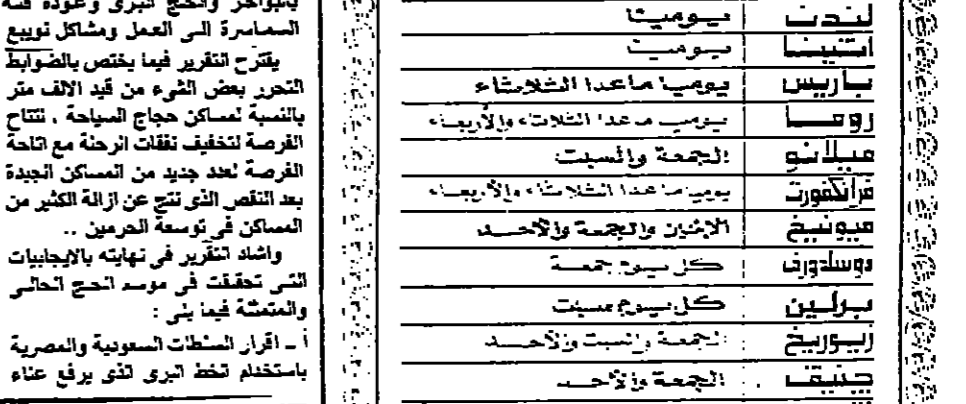 لندن يوميا
اثينا يوميا
باريس يوميا ماعدا الثلاثاء
روما يوميا ما عدا الثلاثاء والأربعاء
ميلانو الجمعة والسبت
فرانكفورت يوميا ما عدا الثلاثاء والأربعاء
ميونيخ الاثنين والجمعة والأحد
دوسلدورف كل يوم جمعة
برلين كل يوم سبت
زيوريخ الجمعة والسبت والأحد
جنيف الجمعة والأحد
بالبواخر والحج البرى وعودة فئة
السماسرة الى العمل ومشاكل توييع
يقترح التقرير فيما يختص بالضوابط
التحرر بعض الشىء من قيد الالف متر
بالنسبة لمساكن حجاج السياحة ، لتتاح
الفرصة لتخفيف نفقات الرحلة مع اتاحة
الفرصة لعدد جديد من المساكن الجيدة
بعد النقص الذى نتج عن ازالة الكثير من
المساكن فى توسعة الحرمين ..
واشاد التقرير فى نهايته بالايجابيات
التى تحققت فى موسم الحج الحالى
والمتمثلة فيما يلى :
أ ـ اقرار السلطات السعودية والمصرية
باستخدام الخط البرى الذى يرفع عناء